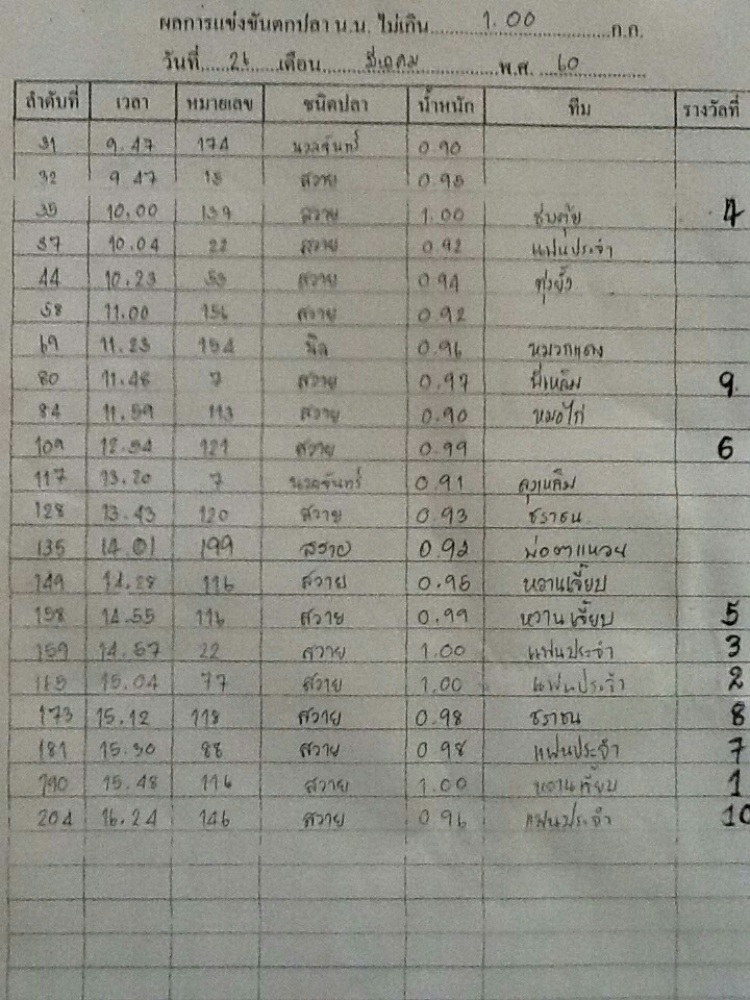 ผลการแข่งขันตกปลา น.น. ไม่เกิน 1.00 ก.ก.
วันที่ 26 เดือน มีนาคม พ.ศ. 60
ลำดับที่ เวลา หมายเลข ชนิดปลา น้ำหนัก ทีม รางวัลที่
31 9.47 174 นวลจันทร์ 0.90
32 9.47 สวาย 0.95
35 10.00 139 สวาย 1.00 4
37 10.04 22 สวาย 0.92 แฟนประจำ
44 10.23 สวาย 0.94 ทุ่งยั้ง
58 11.00 156 สวาย 0.92
69 11.23 154 นิล 0.96 หมวกแดง
80 11.46 7 สวาย 0.97 9
84 11.59 113 สวาย 0.90 หมอไก่
109 12.54 121 สวาย 0.99 6
117 13.20 7 นวลจันทร์ 0.91 ลุงเหลิม
128 13.43 120 สวาย 0.93 ธราธน
135 14.01 199 สวาย 0.92 พ่อตาแหวน
149 14.28 116 สวาย 0.95 หวานเจี๊ยบ
158 14.55 116 สวาย 0.99 หวานเจี๊ยบ 5
159 14.57 22 สวาย 1.00 แฟนประจำ 3
165 15.04 77 สวาย 1.00 แฟนประจำ 2
173 15.12 118 สวาย 0.98 ธราธน 8
181 15.30 88 สวาย 0.98 แฟนประจำ 7
190 15.48 116 สวาย 1.00 หวานเจี๊ยบ 1
204 16.24 146 สวาย 0.96 แฟนประจำ 10